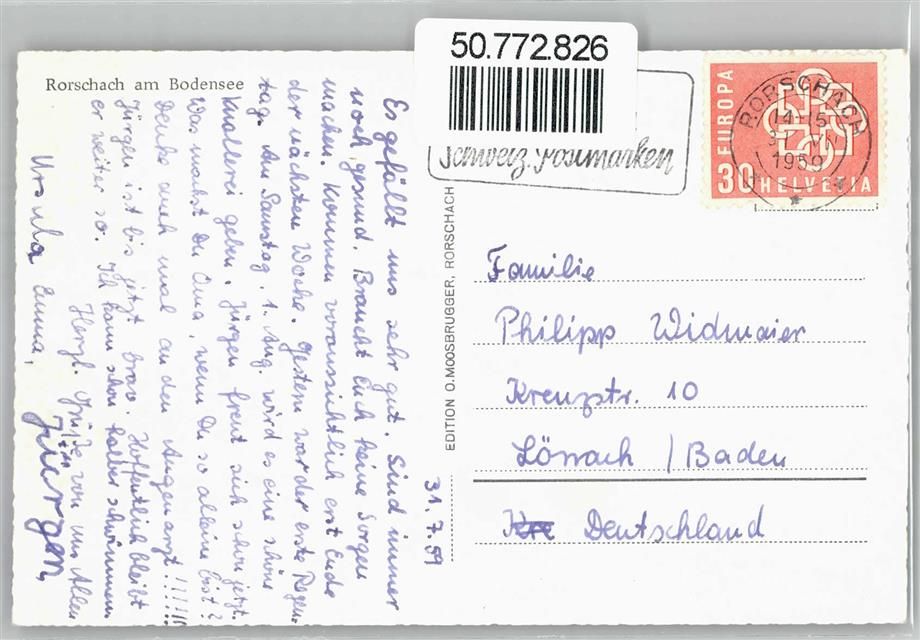 50.772.826
Rorschach am Bodensee
EUROPA
30 HELVETIA
RORSCHACH
1959
schweiz. postmarken
EDITION O. MOOSBRUGGER, RORSCHACH
31. 7. 59
Es gefällt uns sehr gut. Sind immer
noch gesund. Braucht Euch keine Sorgen
machen. Kommen voraussichtlich erst Ende
der nächsten Woche. Gestern war der erste Regen-
tag. Am Samstag, 1. Aug. wird es eine schöne
Knallerei geben. Jürgen freut sich schon jetzt.
Was machst Du Oma, wenn Du so alleine bist?
Denke auch mal an den Augenarzt!!!!!
Jürgen ist bis jetzt brav. Hoffentlich bleibt
er weiter so. Ich kann schon halber schwimmen.
Herzl. Grüße von uns Allen
Ursula Emma,
Jürgen,
Familie
Philipp Widmaier
Kreuzstr. 10
Lörrach / Baden
Deutschland